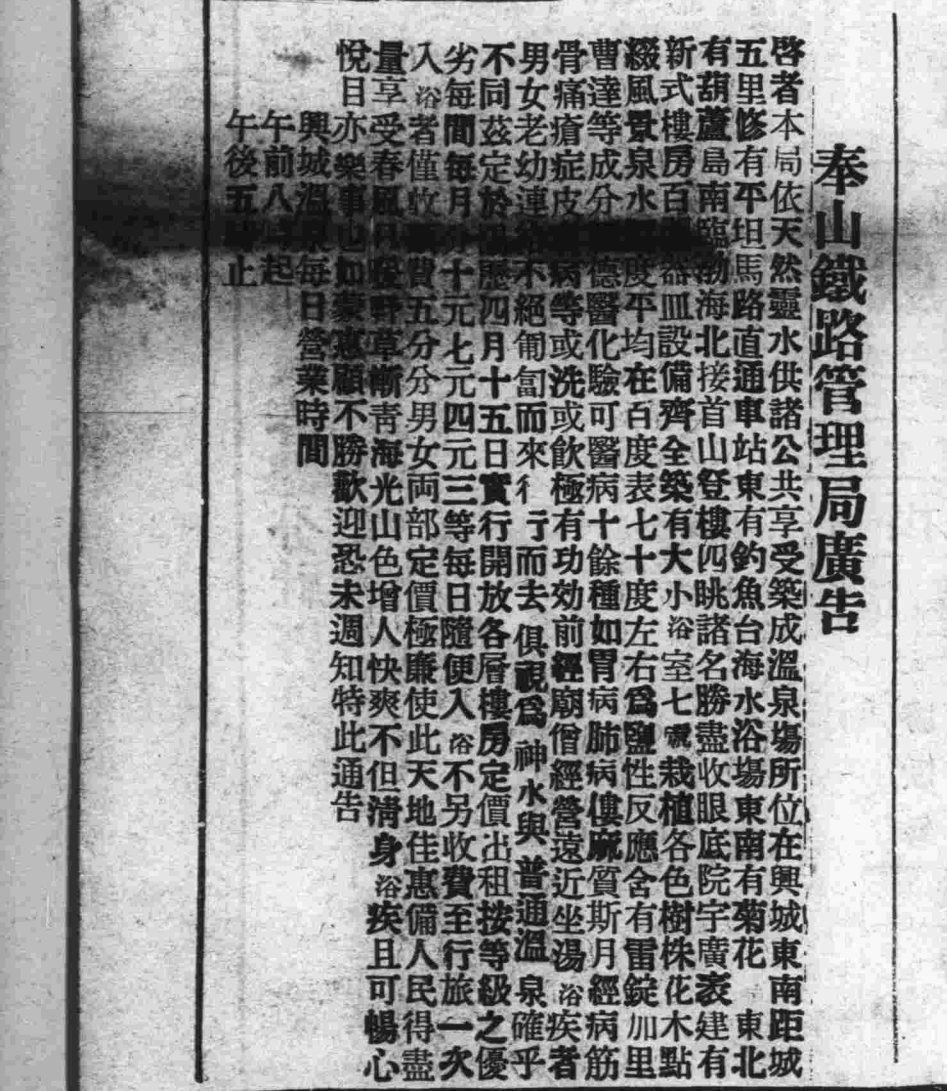 奉山鐵路管理局廣告
啓者本局依天然靈水供諸公共享受築成溫泉塲所位在興城東南距城
五里修有平坦馬路直通車站東有釣魚台海水浴塲東南有菊花 東北
有葫蘆島南臨渤海北接首山登樓四眺諸名勝盡收眼底院宇廣袤建有
新式樓房百 器皿設備齊全築有大小浴室七處栽植各色樹株花木點
綴風景泉水 度平均在百度表七十度左右爲鹽性反應含有雷錠加里
曹達等成分 德醫化驗可醫病十餘種如胃病肺病僂麻質斯月經病筋
骨痛瘡症皮 病等或洗或飲極有功効前經廟僧經營遠近坐湯浴疾者
男女老幼連 不絕匍匐而來彳亍而去俱視爲神水與普通溫泉確乎
不同茲定於 歷四月十五日實行開放各層樓房定價出租按等級之優
劣每間每月 十元七元四元三等每日隨便入浴不另收費至行旅一次
入浴者僅收 費五分分男女両部定價極廉使此天地佳惠備人民得盡
量享受春風 野草漸青海光山色增人快爽不但清身浴疾且可暢心
悅目亦樂事也如蒙惠顧不勝歡迎恐未週知特此通告
興城溫泉每日營業時間
午前八 起
午後五 止